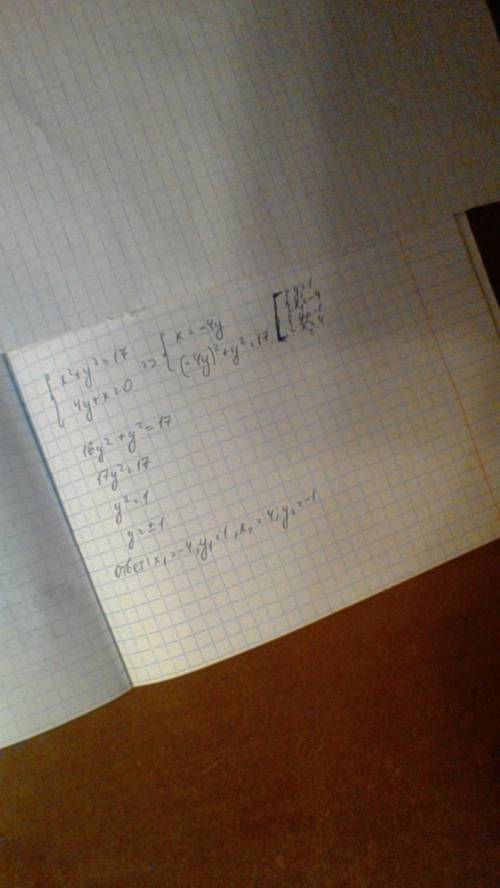 { x²+y²=17
4y+x=0 => { x=-4y
(-4y)²+y²=17 [ { y=1
x=-4
{ y=-1
x=4
16y²+y²=17
17y²=17
y²=1
y=±1
Ответ: x₁=-4, y₁=1, x₂=4, y₂=-1